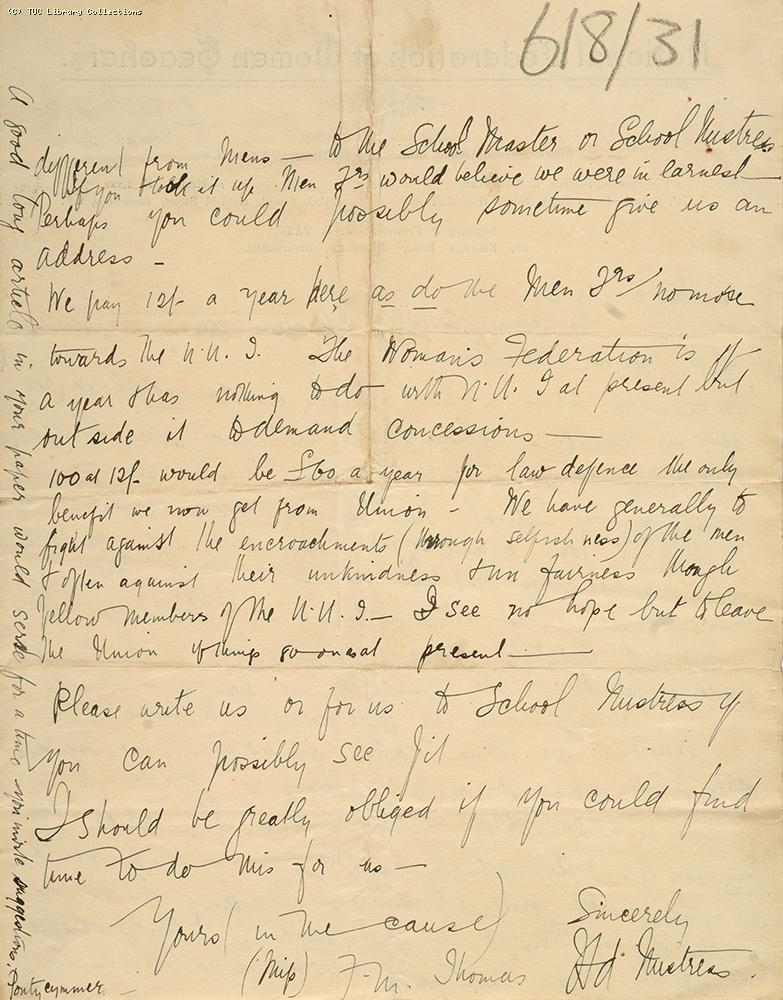 (C) TUC Library Collections
6/8/31
National Federation of Women Teachers.
different from Mens — to the School Master or School Mistress
If you took it up Men Trs would believe we were in earnest —
Perhaps you could possibly sometime give us an
address —
We pay 12/- a year here as do the Men Trs / no more
towards the N.U.T. The Womans Federation is 1/-
a year & has nothing to do with N.U.T at present but
outside it to demand concessions —
100 at 12/- would be £60 a year for law defence the only
benefit we now get from Union — We have generally to
fight against the encroachments (through selfishness) of the men
& often against their unkindness & unfairness though
fellow members of the N.U.T. — I see no hope but to leave
the Union if things go on as at present —
Please write us or for us to School Mistress if
you can possibly see fit
I should be greatly obliged if you could find
time to do this for us —
Yours (in the cause) Sincerely
(Miss) F. M. Thomas Hd Mistress.
A good long article in your paper would serve for a time suggestions.
Pontycymmer —